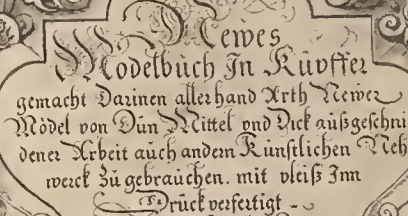 Newes
Modelbuch In Kupffer
gemacht Darinen allerhand Arth Newer
Mödel von Dün Mittel vnd Dick außgeschni
dener Arbeit auch andern Künstlichen Neh
werck Zu gebrauchen. mit vleiß Inn
Drück verfertigt